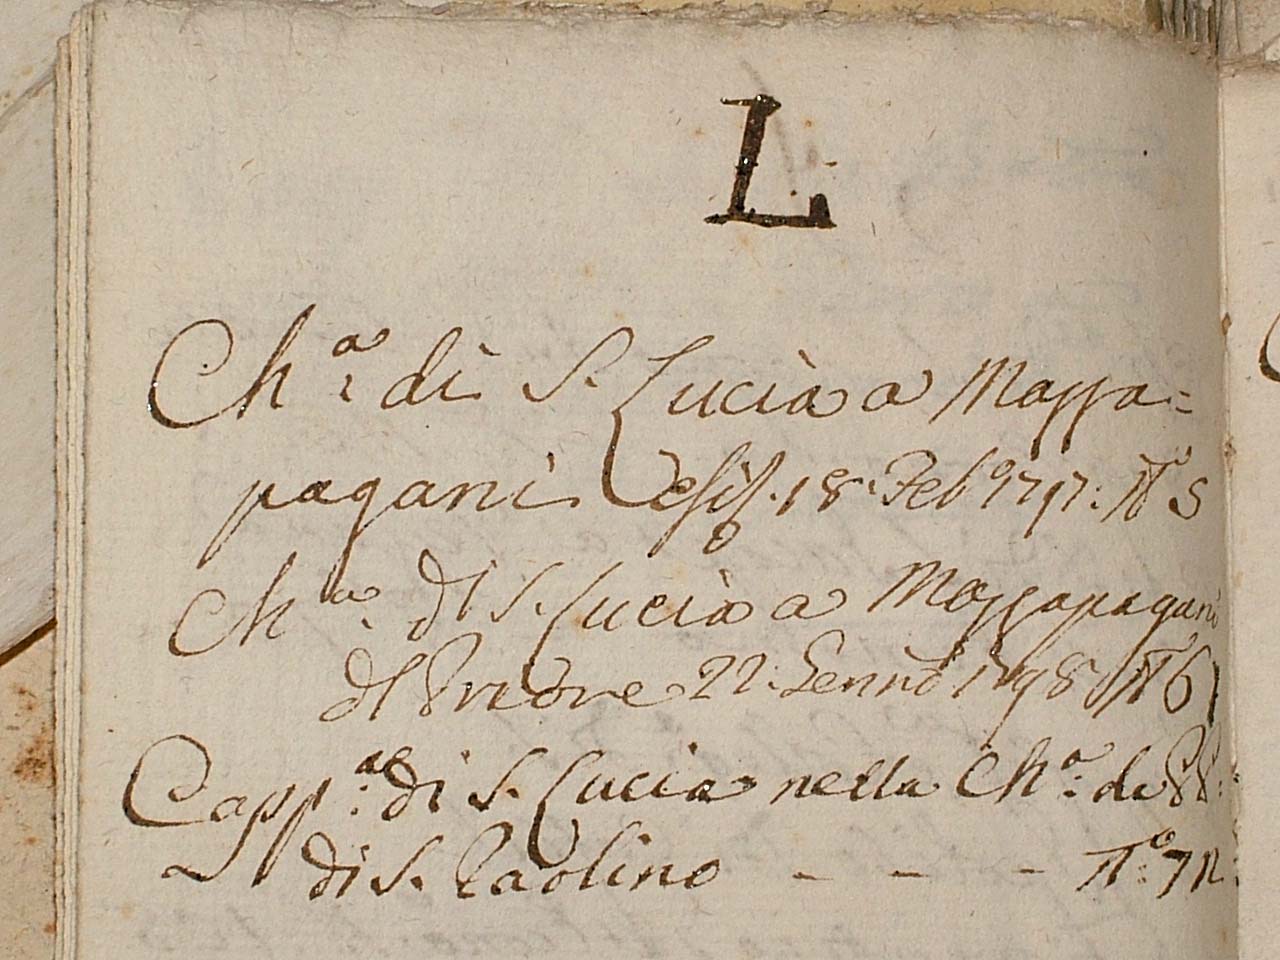 L
Ch.a di S. Lucia a Massa=
pagani esis. 18. Feb.o 1797. N.o 5
Ch.a di S. Lucia a Massapagani
22. Genn.o 1798 N.o 61
Capp.a di S. Lucia nella Ch.a de PP.
di S. Paolino - - - N.o 72